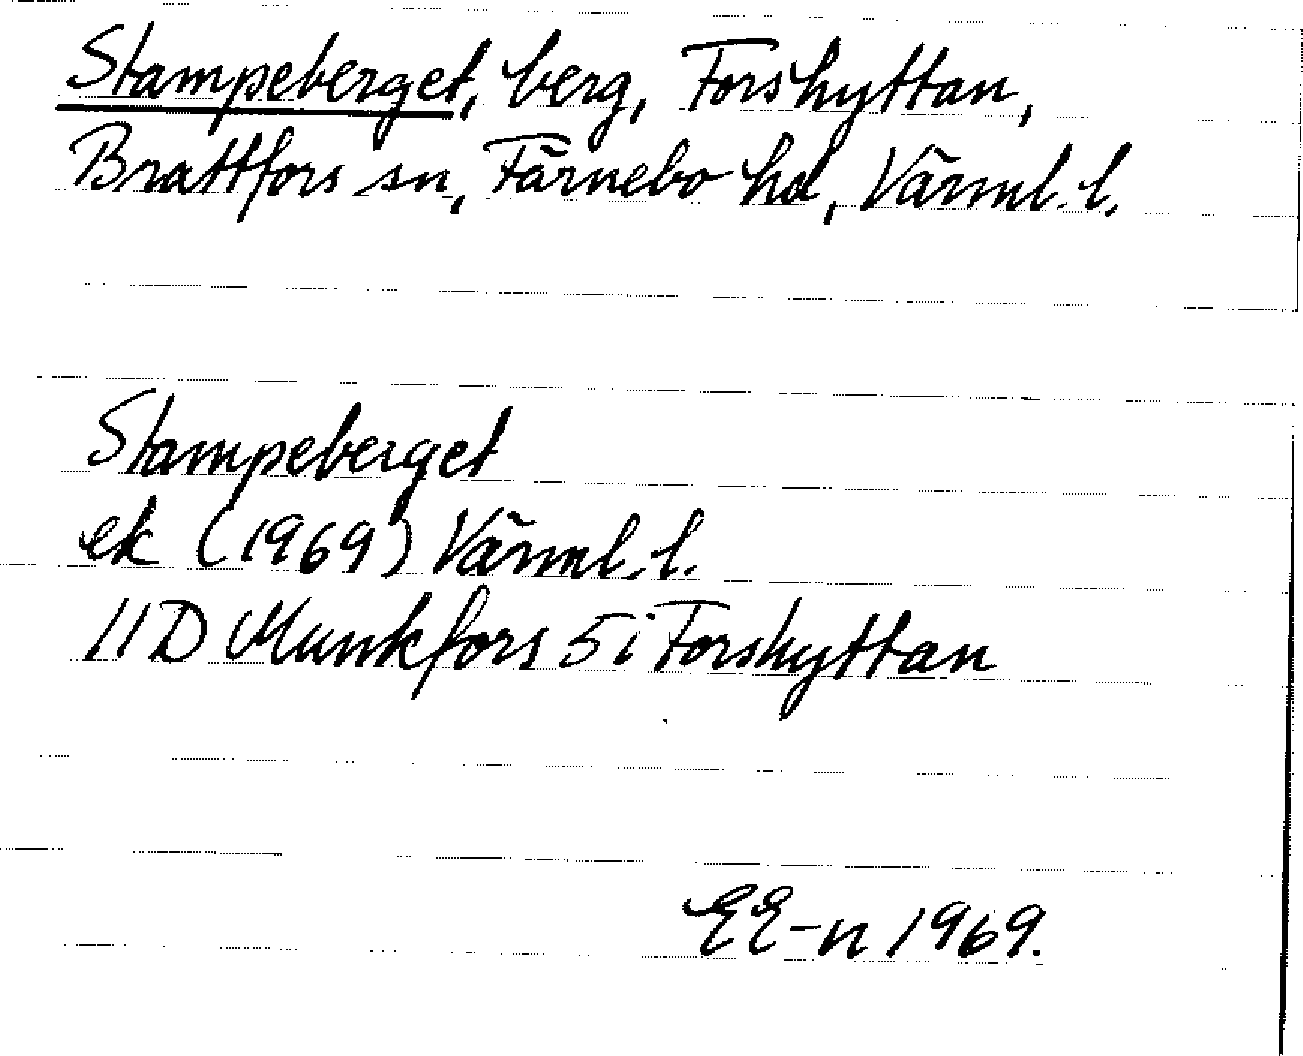 Stampeberget, berg, Forshyttan,
Brattfors sn, Färnebo hd, Värml. l.
Stampeberget
ek (1969) Värml. l.
11D Munkfors 5i Forshyttan
EE-n 1969.